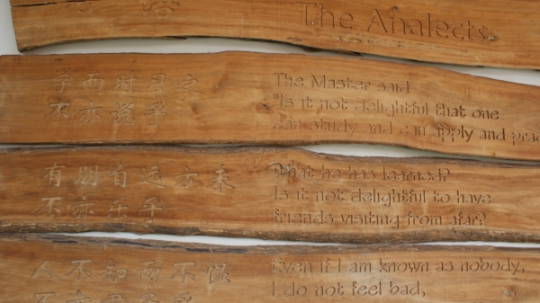 The Analects
学而时习之
The Master said
"Is it not delightful that one
不亦说乎
can study and can apply and
有朋自远方来
what he has learned?
不亦乐乎
Is it not delightful to have
friends visiting from afar?
人不知而不愠
Even if I am known as nobody,
I do not feel bad,